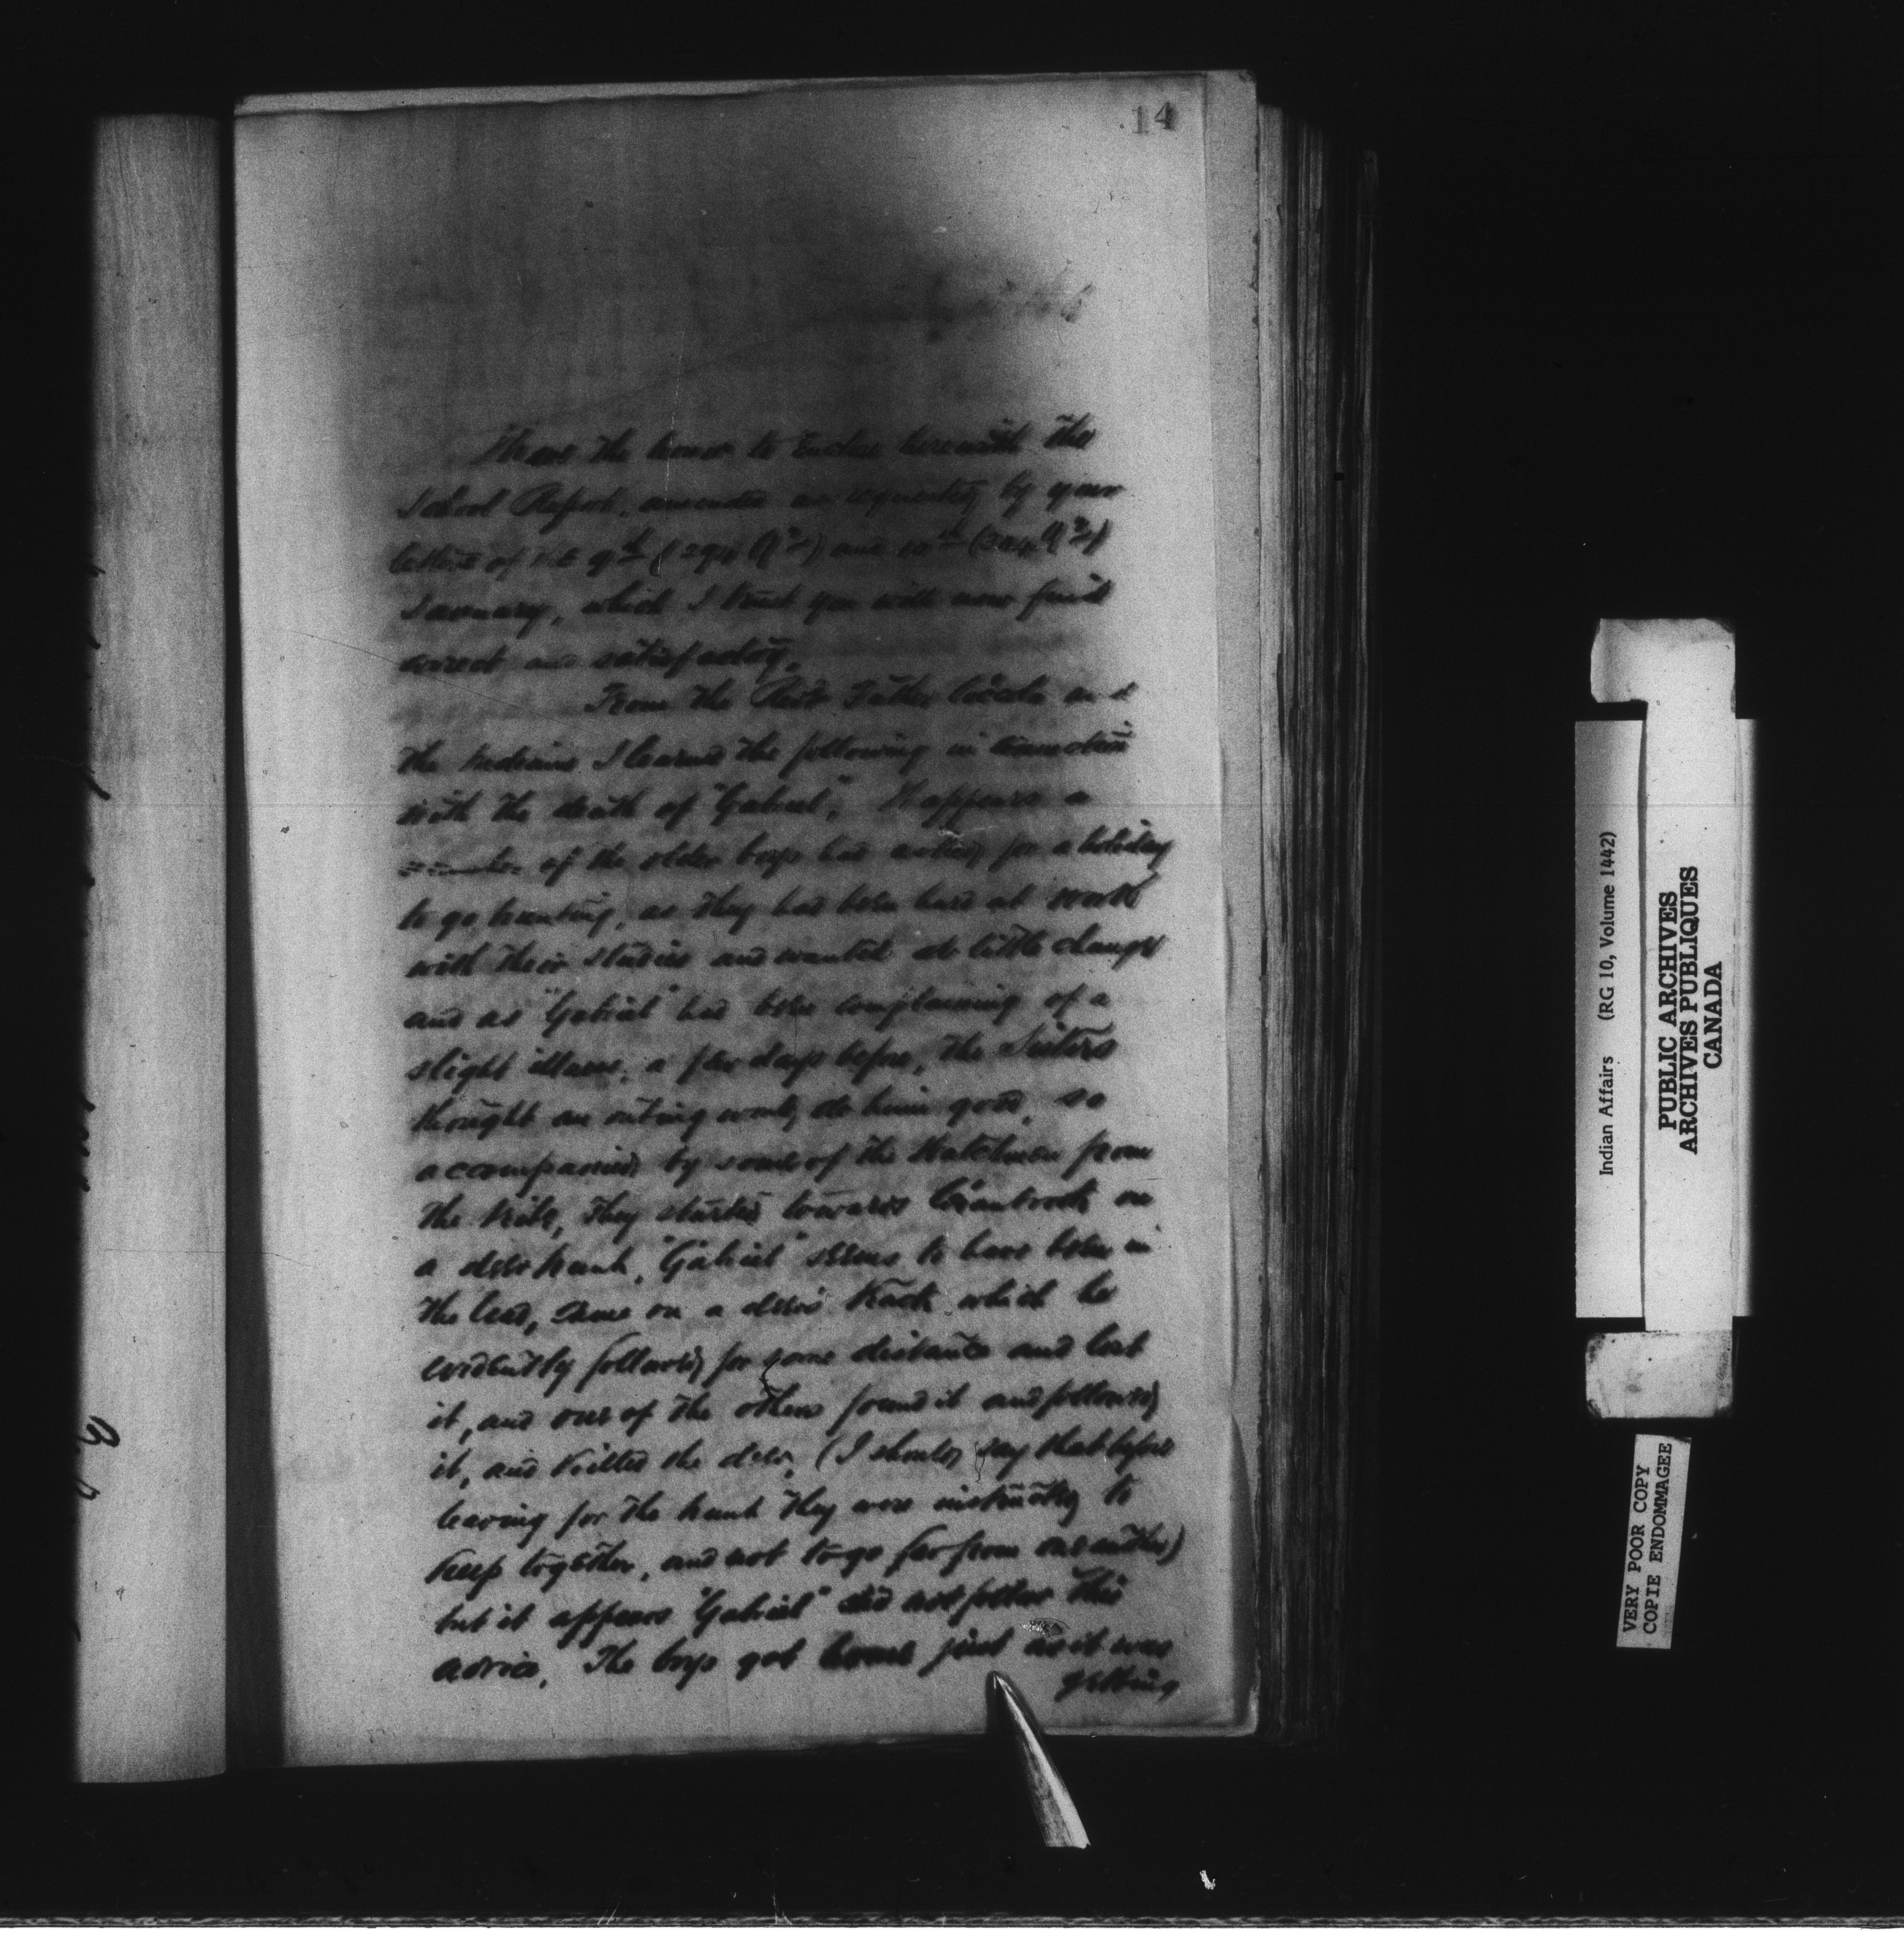 14
I have the honor to enclose herewith the
School Report, amended as requested by your
letters of the 9th (294 Qr) and 10th
January, which I trust you will now find
correct and satisfactory.
From the Revd Father Coccola and
the Indians I learned the following in connection
with the death of "Gabriel". It appears a
number of the older boys had asked for a holiday
to go hunting, as they had been hard at work
with their studies and wanted a little change
and as "Gabriel" had been complaining of a
slight illness, a few days before, the Sisters
thought an outing would do him good, so
accompanied by some of the Watchmen from
the tribe, they started towards Cranbrook on
a deer hunt, "Gabriel" seems to have been in
the lead, came on a deer's track which he
evidently followed for some distance and lost
it, and one of the others found it and followed
it, and killed the deer. (I should say that before
leaving for the hunt they were instructed to
keep together, and not to go far from one another)
but it appears "Gabriel" did not follow this
advice. The boys got home just as it was
getting
Indian Affairs (RG 10, Volume 1442)
PUBLIC ARCHIVES
ARCHIVES PUBLIQUES
CANADA
VERY POOR COPY
COPIE ENDOMMAGEE